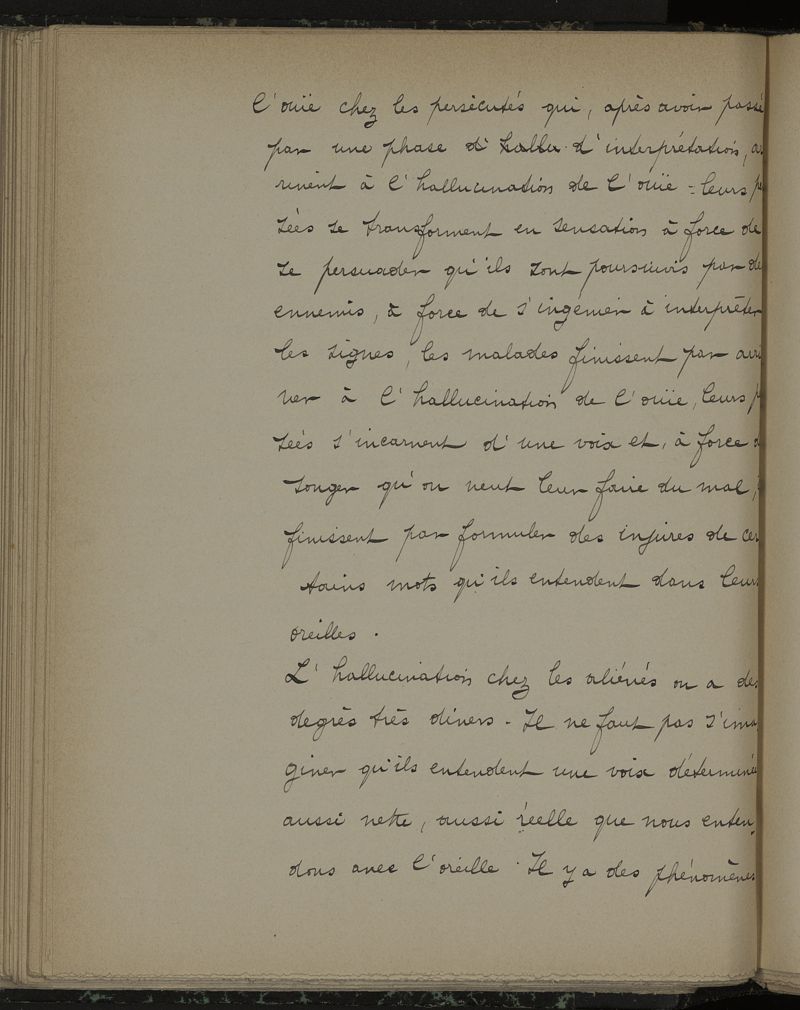 l'ouïe chez les persécutés qui, après avoir passé
par une phase d' hallu d'interprétation, ar
rivent à l'hallucination de l'ouïe - leurs pe
sées se transforment en sensation à force de
se persuader qu'ils sont poursuivis par de
ennemis, à force de s'ingénier à interpréter
les signes, les malades finissent par arri
ver à l'hallucination de l'ouïe, leurs p
sées s'incarnent d'une voix et, à force d
songer qu'on veut leur faire du mal,
finissent par formuler des injures de cer
tains mots qu'ils entendent dans leurs
oreilles.
L'hallucination chez les aliénés on a des
degrés très divers - Il ne faut pas s'ima
giner qu'ils entendent une voix déterminée
aussi nette, aussi réelle que nous enten
dons avec l'oreille. Il y a des phénomènes